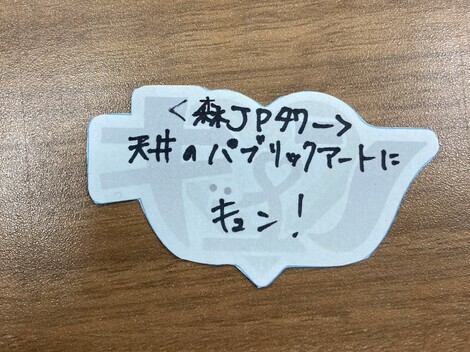 <森JPタワー>
天井のパブリックアートに
キュン!